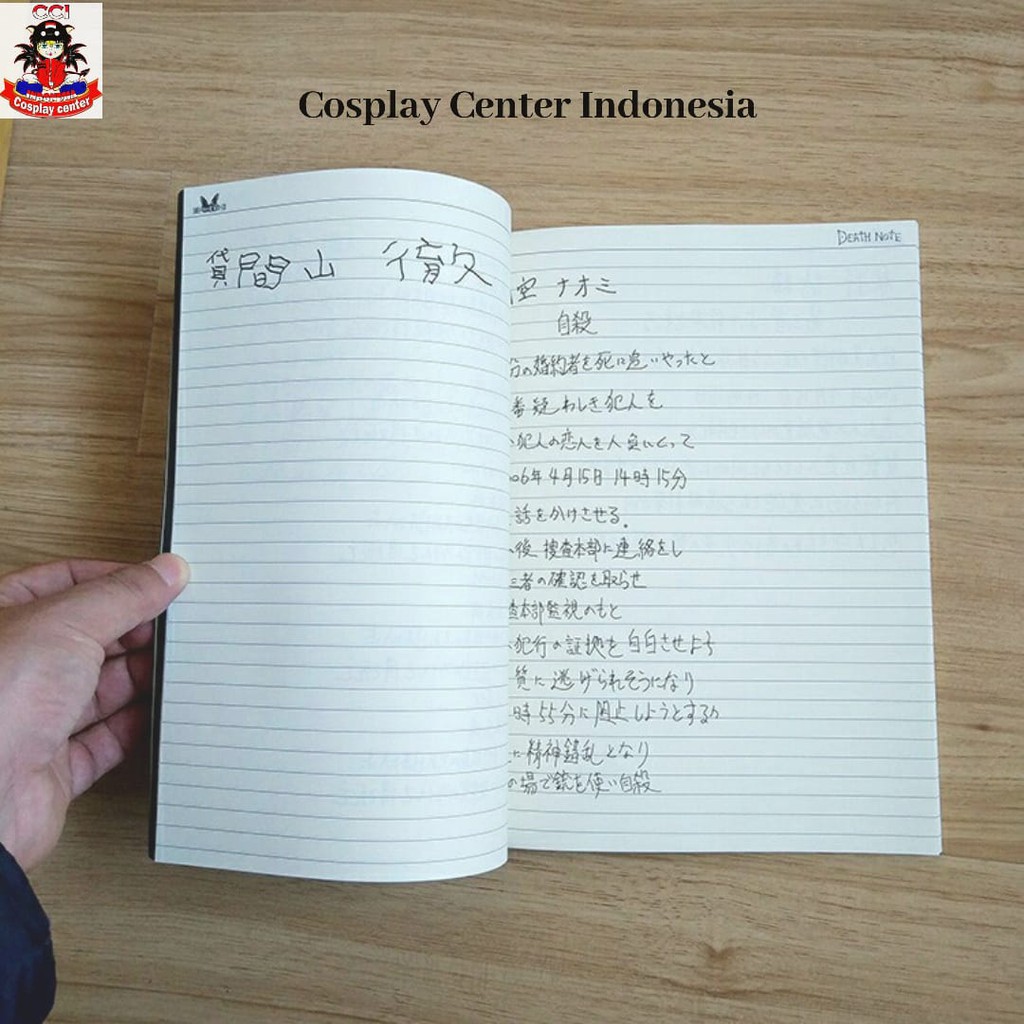 CCI
Cosplay center
Cosplay Center Indonesia
貸間山
DEATH NOTE
空 ナオミ
自殺
分の婚約者を死に追いやったと
番疑わしき犯人を
犯人の恋人を人質にとって
06年4月15日 14時15分
話をかけさせる。
後 捜査本部に連絡をし
三者の確認を取らせ
査本部監視のもと
犯行の証拠を自白させよう
質に逃げられそうになり
時55分に阻止しようとするが
に精神錯乱となり
の場で銃を使い自殺